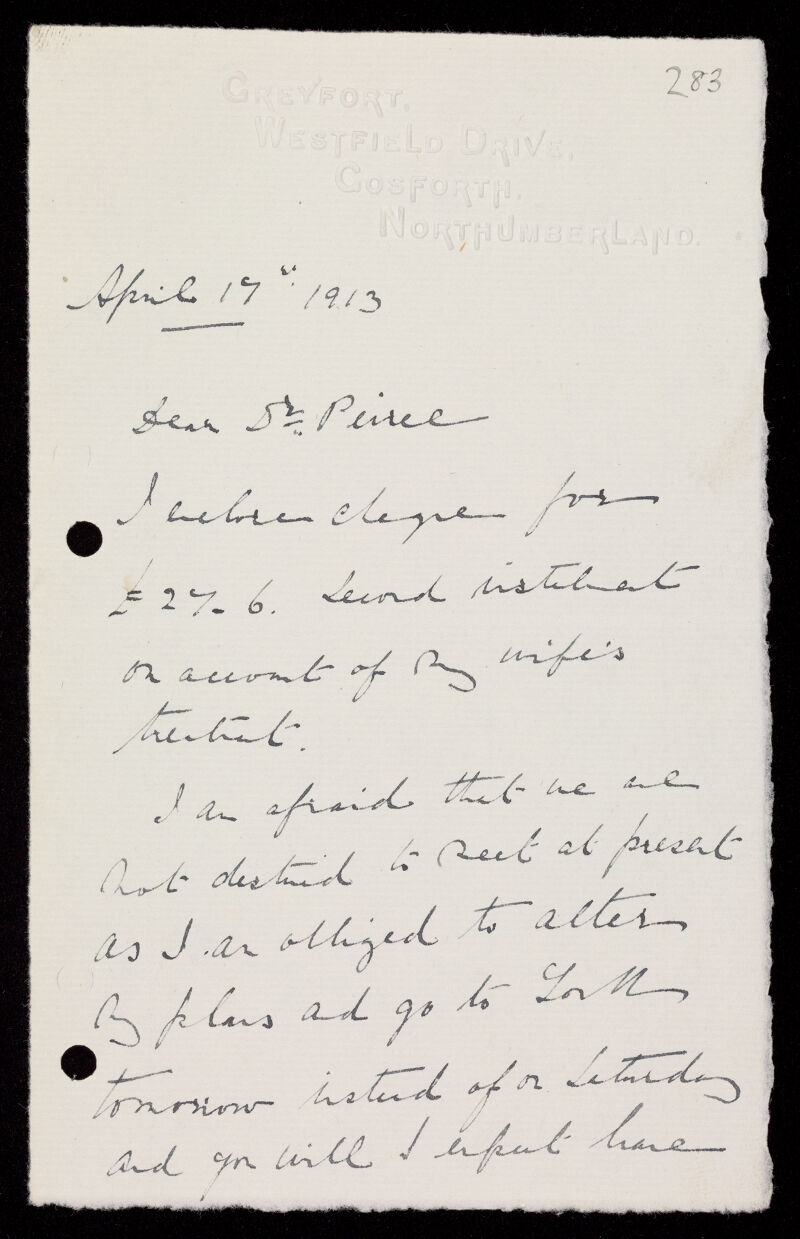 283
GREYFORT,
WESTFIELD DRIVE,
GOSFORTH,
NORTHUMBERLAND.
April 17th 1913
Dear Dr. Peirce
I enclose cheque for
£27-6. Second instalment
on account of my wife's
treatment.
I am afraid that we are
not destined to meet at present
as I am obliged to alter
my plans and go to York
tomorrow instead of on Saturday
and you will I expect have